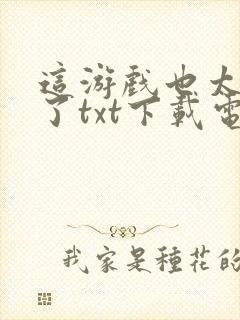 這游戲也太
了txt下載電
我家是種花的